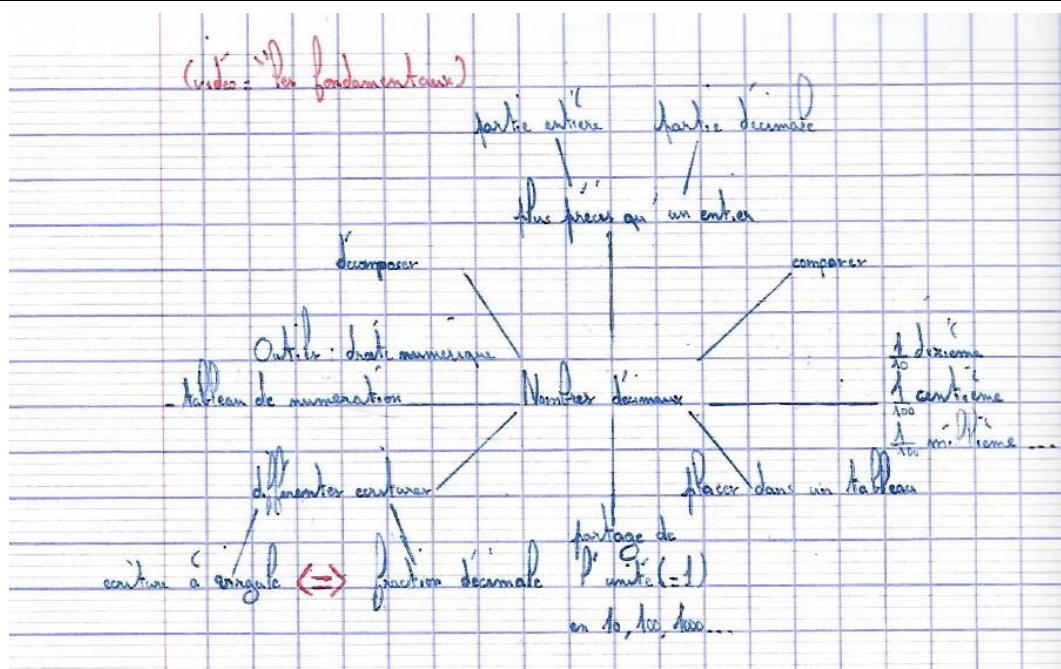 (vidéo = "les fondamentaux)
partie entière partie décimale
plus précis qu'un entier
décomposer comparer
Outils : droite numérique
1/10 dixième
- tableau de numération Nombres décimaux
1/100 centième
1/100 millième ...
différentes ecritures placer dans un tableau
partage de
ecriture à virgule <=> fraction décimale l'unité (=1)
en 10, 100, 1000...